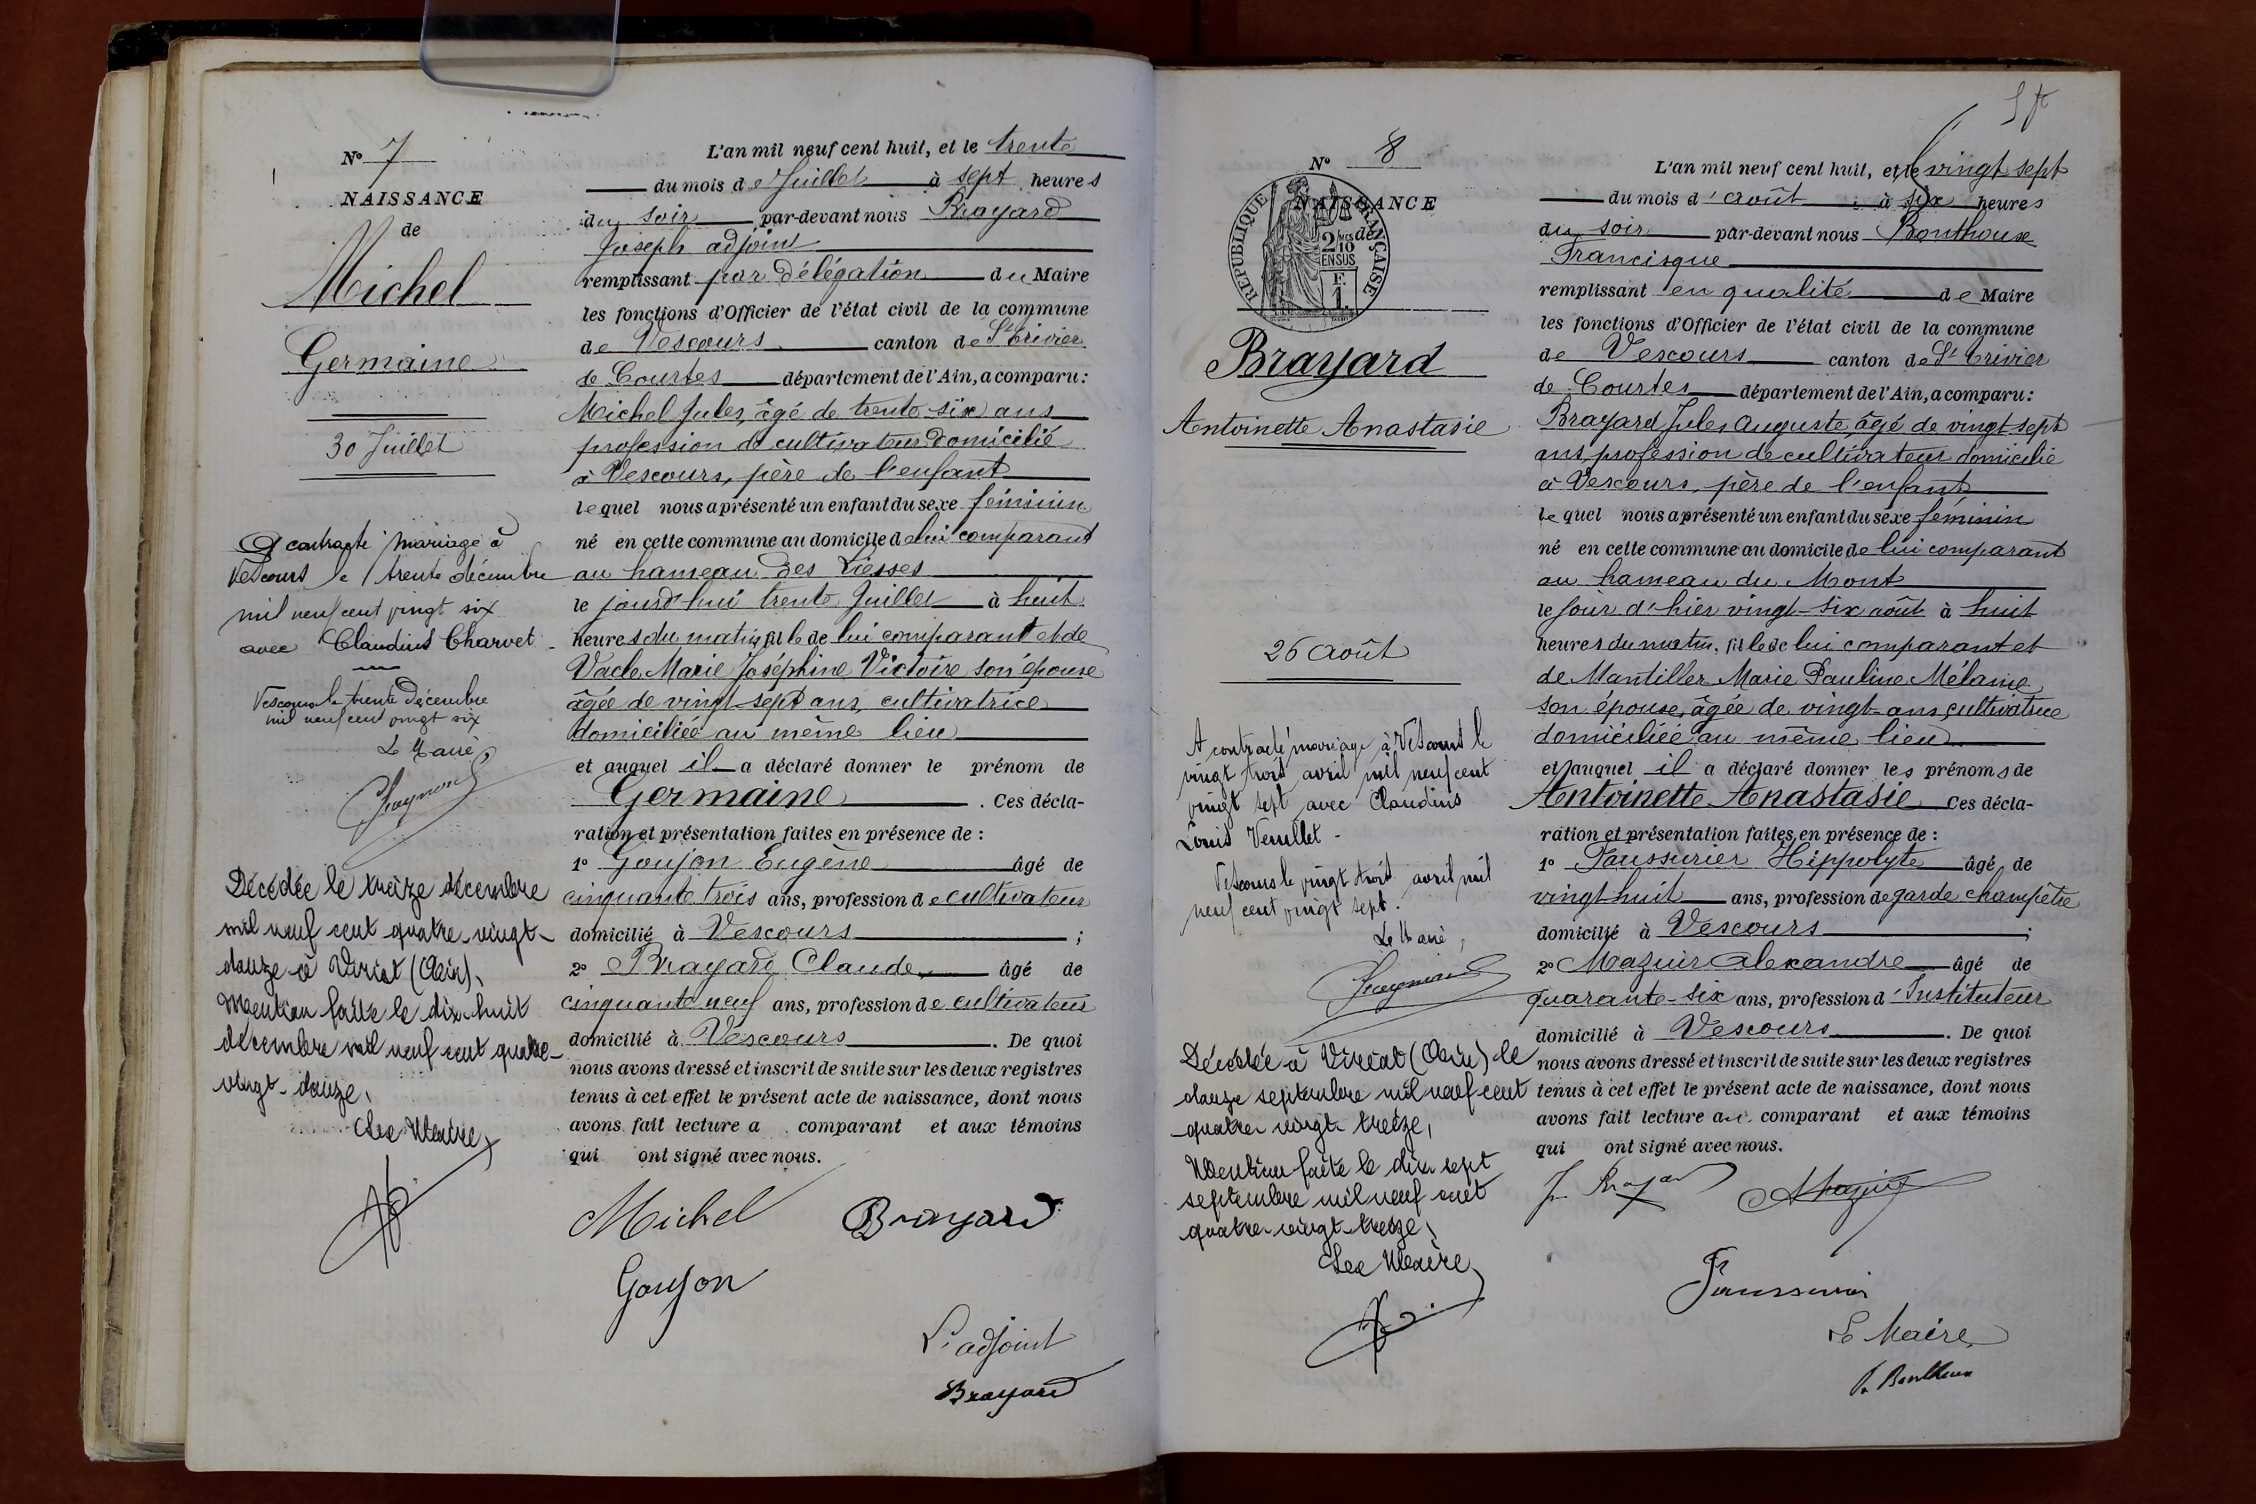 N° 7
NAISSANCE
de
Michel
Germaine
30 Juillet
A contracté mariage à
Vescours le trente décembre
mil neuf cent vingt six
avec Claudius Charvet
Vescours le trente décembre
mil neuf cent vingt six
Le Maire
Décédée le treize décembre
mil neuf cent quatre-vingt-
douze à Viriat (Ain).
Mention faite le dix-huit
décembre mil neuf cent quatre-
vingt-douze.
Le Maire,
L'an mil neuf cent huit, et le trente
du mois de Juillet à sept heures
du soir par-devant nous Brayard
Joseph adjoint
remplissant par délégation du Maire
les fonctions d'Officier de l'état civil de la commune
de Vescours canton de St Trivier
de Courtes département de l'Ain, a comparu :
Michel Jules, âgé de trente-six ans
profession de cultivateur domicilié
à Vescours, père de l'enfant
lequel nous a présenté un enfant du sexe féminin
né en cette commune au domicile de lui comparant
au hameau des Liesses
le jourd'hui trente Juillet à huit
heures du matin, fille de lui comparant et de
Vacle Marie Joséphine Victoire son épouse
âgée de vingt-sept ans, cultivatrice
domiciliée au même lieu
et auquel il a déclaré donner le prénom de
Germaine . Ces décla-
ration et présentation faites en présence de :
1° Goujon Eugène âgé de
cinquante trois ans, profession de cultivateur
domicilié à Vescours ;
2° Brayard Claude, âgé de
cinquante neuf ans, profession de cultivateur
domicilié à Vescours . De quoi
nous avons dressé et inscrit de suite sur les deux registres
tenus à cet effet le présent acte de naissance, dont nous
avons fait lecture a comparant et aux témoins
qui ont signé avec nous.
Michel Brayard
Goujon
L'adjoint
Brayard
N° 8
NAISSANCE
de
RÉPUBLIQUE FRANÇAISE
2/10
EN SUS
Brayard
Antoinette Anastasie
26 Août
A contracté mariage à Vescours le
vingt trois avril mil neuf cent
vingt sept avec Claudius
Louis
Vescours le vingt trois avril mil
neuf cent vingt sept.
Le Maire,
Décédée à Viriat (Ain) le
douze septembre mil neuf cent
quatre-vingt-treize,
Mention faite le dix-sept
septembre mil neuf cent
quatre-vingt-treize,
Le Maire,
L'an mil neuf cent huit, et le vingt sept
du mois d'août à six heures
du soir par-devant nous Bonthoux
Francisque
remplissant en qualité de Maire
les fonctions d'Officier de l'état civil de la commune
de Vescours canton de St Trivier
de Courtes département de l'Ain, a comparu :
Brayard Jules Auguste, âgé de vingt-sept
ans, profession de cultivateur domicilié
à Vescours, père de l'enfant
lequel nous a présenté un enfant du sexe féminin
né en cette commune au domicile de lui comparant
au hameau du Mont
le jour d'hier vingt-six août à huit
heures du matin, fille de lui comparant et
de Mantillez Marie Pauline Mélanie
son épouse, âgée de vingt-ans, cultivatrice
domiciliée au même lieu
et auquel il a déclaré donner les prénoms de
Antoinette Anastasie Ces décla-
ration et présentation faites en présence de :
1° Faussurier Hippolyte âgé de
vingt huit ans, profession de garde champêtre
domicilié à Vescours ;
2° Mazuir Alexandre âgé de
quarante-six ans, profession d'Instituteur
domicilié à Vescours . De quoi
nous avons dressé et inscrit de suite sur les deux registres
tenus à cet effet le présent acte de naissance, dont nous
avons fait lecture au comparant et aux témoins
qui ont signé avec nous.
Mazuir
Faussurier
Le Maire